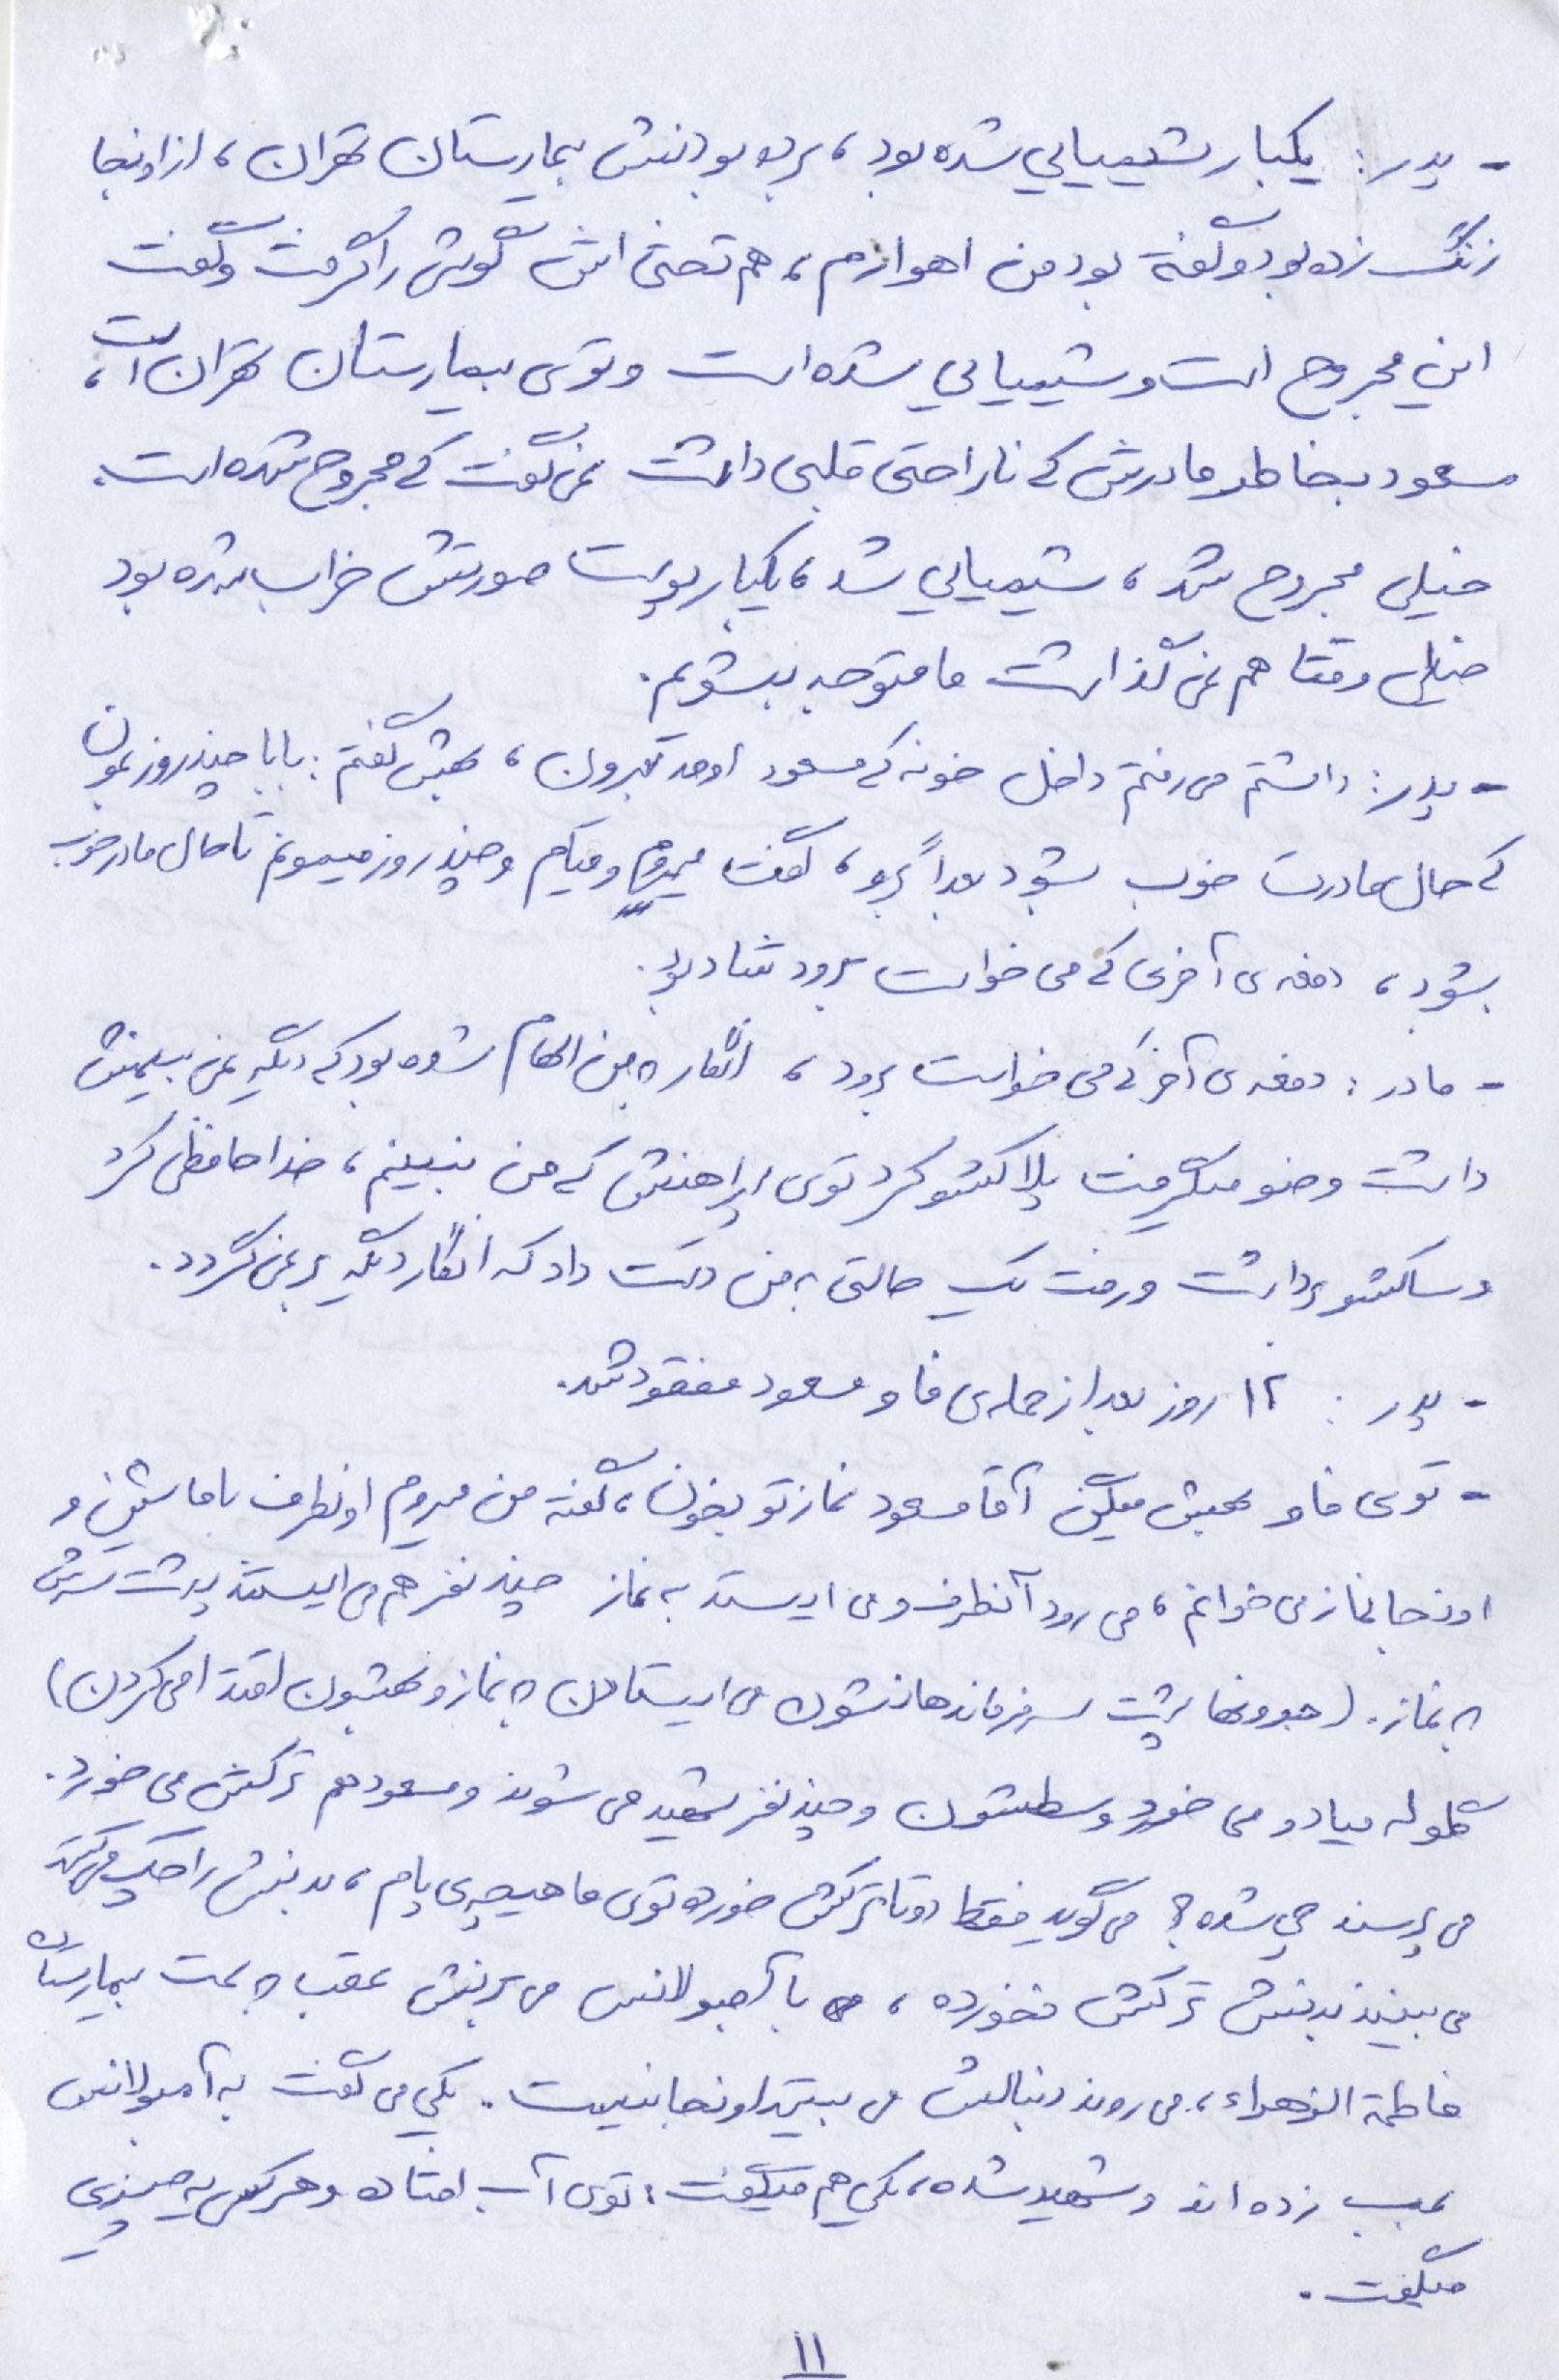 - پدر: یکبار شیمیایی شده بود، برده بودنش بیمارستان تهران، از اونجا
زنگ زده بود و گفته بود من اهوازم، هم تختی اش گوشی را گرفت و گفت
این مجروح است و شیمیایی شده است و توی بیمارستان تهران است،
مسعود بخاطر مادرش که ناراحتی قلبی داشت نمی گفت که مجروح شده است.
خیلی مجروح شد، شیمیایی شد، یکبار پوست صورتش خراب شده بود
خیلی وقتا هم نمی گذاشت ما متوجه بشویم.
- پدر: داشتم می رفتم داخل خونه که مسعود اومد بیرون، بهش گفتم: بابا چند روز بمون
که حال مادرت خوب بشود بعداً برو، گفت میروم و میام و چند روز میمونم تا حال مادر خوب
بشود، دفعه ی آخری که می خواست برود شاد بود.
- مادر: دفعه ی آخر که می خواست برود، انگار به من الهام شده بود که دیگه نمی بینمش
داشت وضو میگرفت پلاکشو کرد توی پیراهنش که من نبینم، خداحافظی کرد
و ساکشو برداشت و رفت یک حالتی به من دست داد که انگار دیگه بر نمی گردد.
- پدر: ۱۲ روز بعد از حمله ی فاو مسعود مفقود شد.
- توی فاو بهش میگن آقا مسعود نمازتو بخون، گفته من میروم اونطرف با ماشین و
اونجا نماز می خوانم، می رود آنطرف و می ایستد به نماز چند نفر هم می ایستند پشت سرش
به نماز. (جوونها پشت سر فرماندهانشون می ایستادن به نماز و بهشون اقتدا می کردن)
گلوله میاد و می خورد وسطشون و چند نفر شهید می شوند و مسعود هم ترکش می خورد.
می پرسند چی شده؟ می گوید فقط دو تا ترکش خورده توی ماهیچه ی پام، بدنش را چک می کنند
می بینند بدنش ترکش نخورده، با آمبولانس می برنش عقب به سمت بیمارستان
فاطمة الزهراء، می روند دنبالش می بینند اونجا نیست. یکی می گفت به آمبولانس
بمب زده اند و شهید شده، یکی هم میگفت: توی آب افتاده و هر کس یه چیزی
میگفت.
۱۱